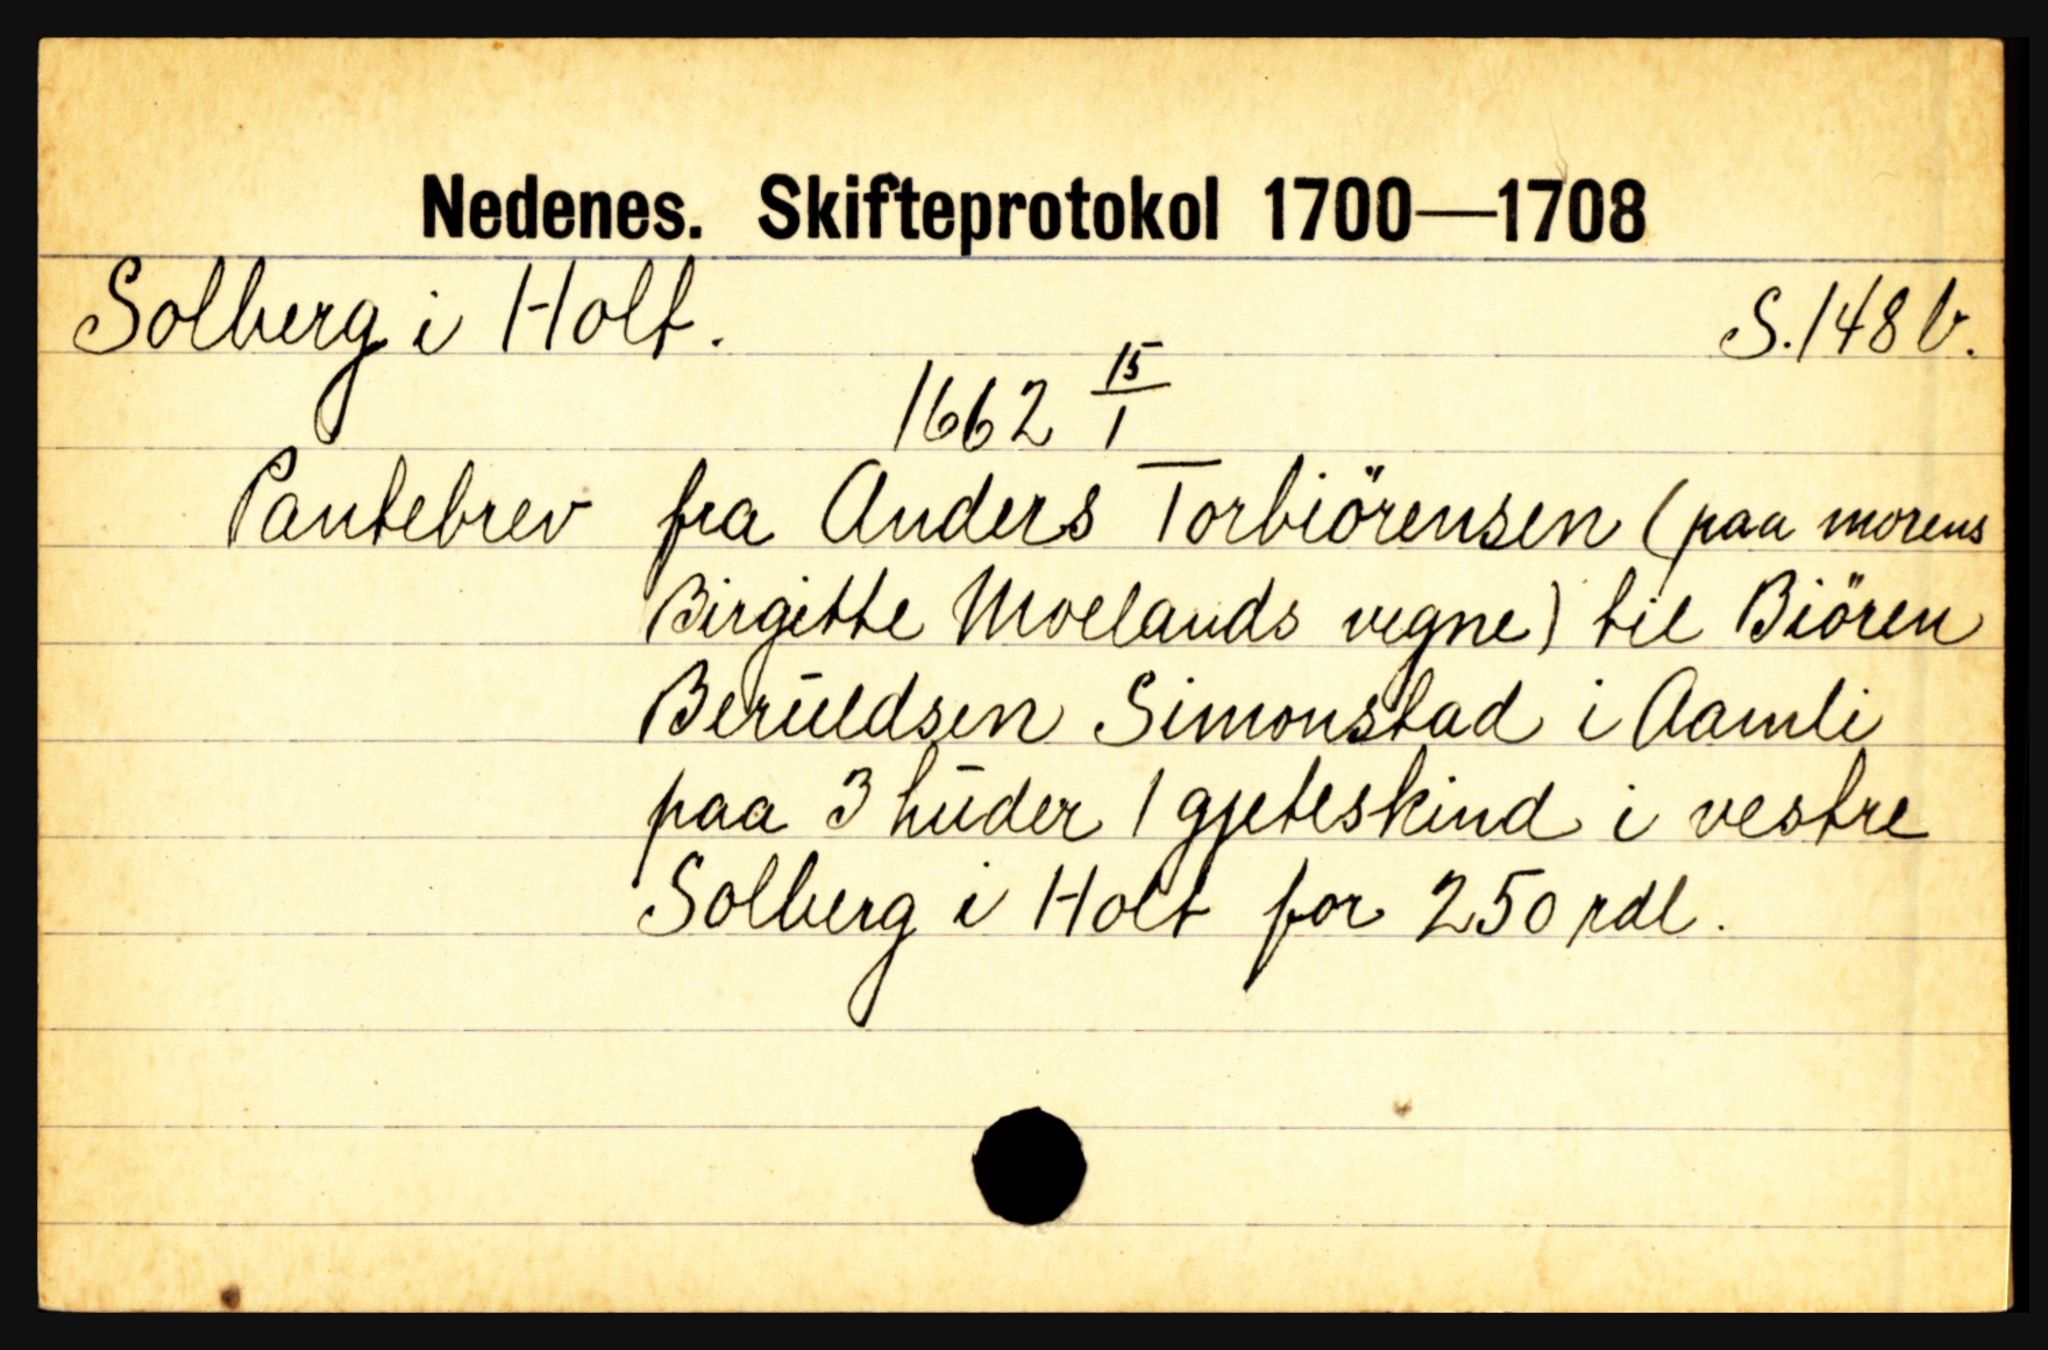 Nedenes. Skifteprotokol 1700—1708
Solberg i Holt. S. 148 b.
1662 15/1
Pantebrev fra Anders Torbiörensen (paa morens
Birgitte Moelands vegne) til Biören
Berūldsen Simonstad i Aamli
paa 3 hūder 1 gjeteskind i vestre
Solberg i Holt for 250 rdl.